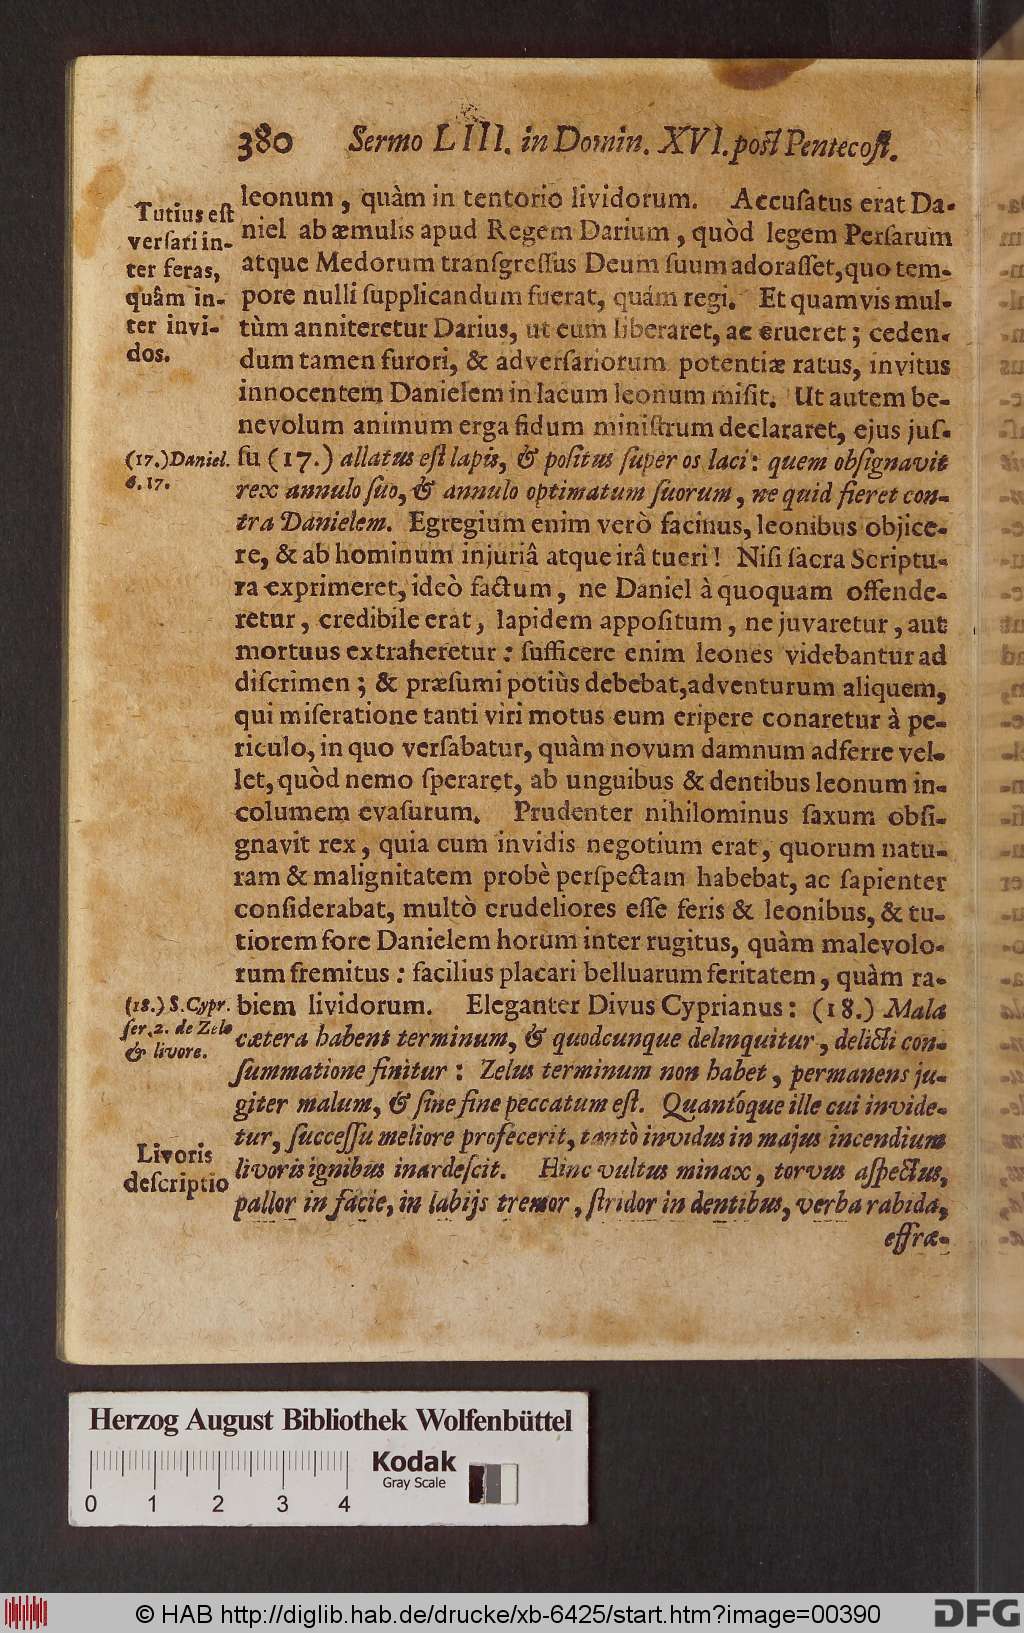 380 Sermo LIII. in Domin. XVI. post Pentecost.
Tutius eſt
verſari in-
ter feras,
quâm in-
ter invi-
dos.
leonum, quàm in tentorio lividorum. Accuſatus erat Da-
niel ab æmulis apud Regem Darium, quòd legem Perſarum
atque Medorum tranſgreſſus Deum ſuum adoraſſet, quo tem-
pore nulli ſupplicandum fuerat, quám regi. Et quamvis mul-
tùm anniteretur Darius, ut eum liberaret, ac erueret; ceden-
dum tamen furori, & adverſariorum potentiæ ratus, invitus
innocentem Danielem in lacum leonum miſit. Ut autem be-
nevolum animum erga fidum miniſtrum declararet, ejus juſ-
(17.) Daniel.
6. 17.
ſu (17.) allatus eſt lapis, & poſitus ſuper os laci: quem obſignavit
rex annulo ſuo, & annulo optimatum ſuorum, ne quid fieret con-
tra Danielem. Egregium enim verò facinus, leonibus objice-
re, & ab hominum injuriâ atque irâ tueri! Niſi ſacra Scriptu-
ra exprimeret, ideò factum, ne Daniel à quoquam offende-
retur, credibile erat, lapidem appoſitum, ne juvaretur, aut
mortuus extraheretur: ſufficere enim leones videbantur ad
diſcrimen; & præſumi potiùs debebat, adventurum aliquem,
qui miſeratione tanti viri motus eum eripere conaretur à pe-
riculo, in quo verſabatur, quàm novum damnum adferre vel-
let, quòd nemo ſperaret, ab unguibus & dentibus leonum in-
columem evaſurum. Prudenter nihilominus ſaxum obſi-
gnavit rex, quia cum invidis negotium erat, quorum natu-
ram & malignitatem probè perſpectam habebat, ac ſapienter
conſiderabat, multò crudeliores eſſe feris & leonibus, & tu-
tiorem fore Danielem horum inter rugitus, quàm malevolo-
rum fremitus: facilius placari belluarum feritatem, quàm ra-
(18.) S. Cypr.
ſer. 2. de Zelo
& livore.
biem lividorum. Eleganter Divus Cyprianus: (18.) Mala
cætera habent terminum, & quodcunque delinquitur, delicti con-
ſummatione finitur: Zelus terminum non habet, permanens ju-
giter malum, & ſine fine peccatum eſt. Quantóque ille cui invide-
tur, ſucceſſu meliore profecerit, tantò invidus in majus incendium
Livoris
deſcriptio
livoris ignibus inardeſcit. Hinc vultus minax, torvus aſpectus,
pallor in facie, in labijs tremor, ſtridor in dentibus, verba rabida,
effræ-
Herzog August Bibliothek Wolfenbüttel
Kodak
Gray Scale
0 1 2 3 4
© HAB http://diglib.hab.de/drucke/xb-6425/start.htm?image=00390
DFG